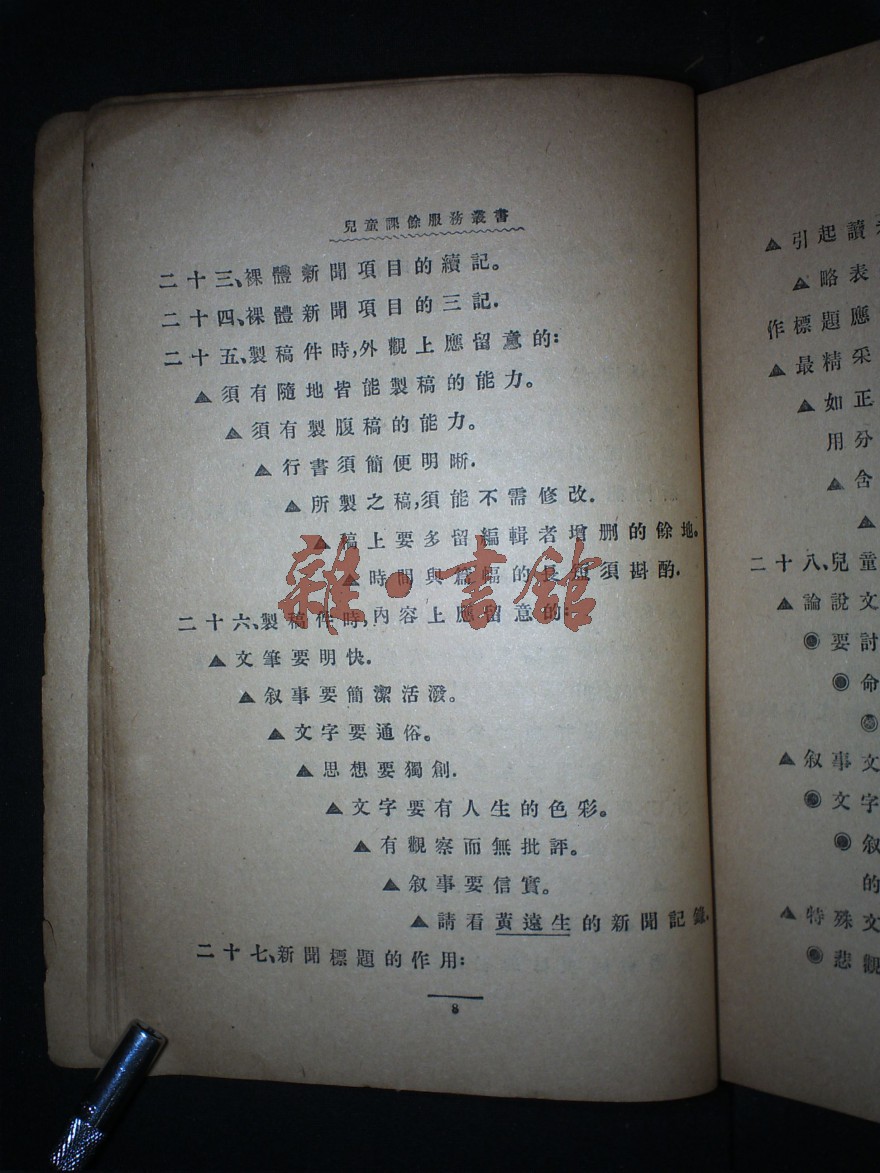 兒童課餘服務叢書
二十三、裸體新聞項目的續記。
二十四、裸體新聞項目的三記.
二十五、製稿件時,外觀上應留意的:
▲須有隨地皆能製稿的能力。
▲須有製腹稿的能力。
▲行書須簡便明晰.
▲所製之稿,須能不需修改.
▲稿上要多留編輯者增刪的餘地。
▲時間與篇幅的長短須斟酌.
二十六、製稿件時,內容上應留意的:
▲文筆要明快.
▲叙事要簡潔活潑。
▲文字要通俗。
▲思想要獨創.
▲文字要有人生的色彩。
▲有觀察而無批評。
▲叙事要信實。
▲請看黃遠生的新聞記錄.
二十七、新聞標題的作用:
8
雜·書館
▲引起讀
▲略表
作標題應
▲最精采
▲如正
用分
▲含
▲
二十八、兒童
▲論說文
◉要討
◉命
◉
▲叙事文
◉文字
◉叙
的
▲特殊文
◉悲觀